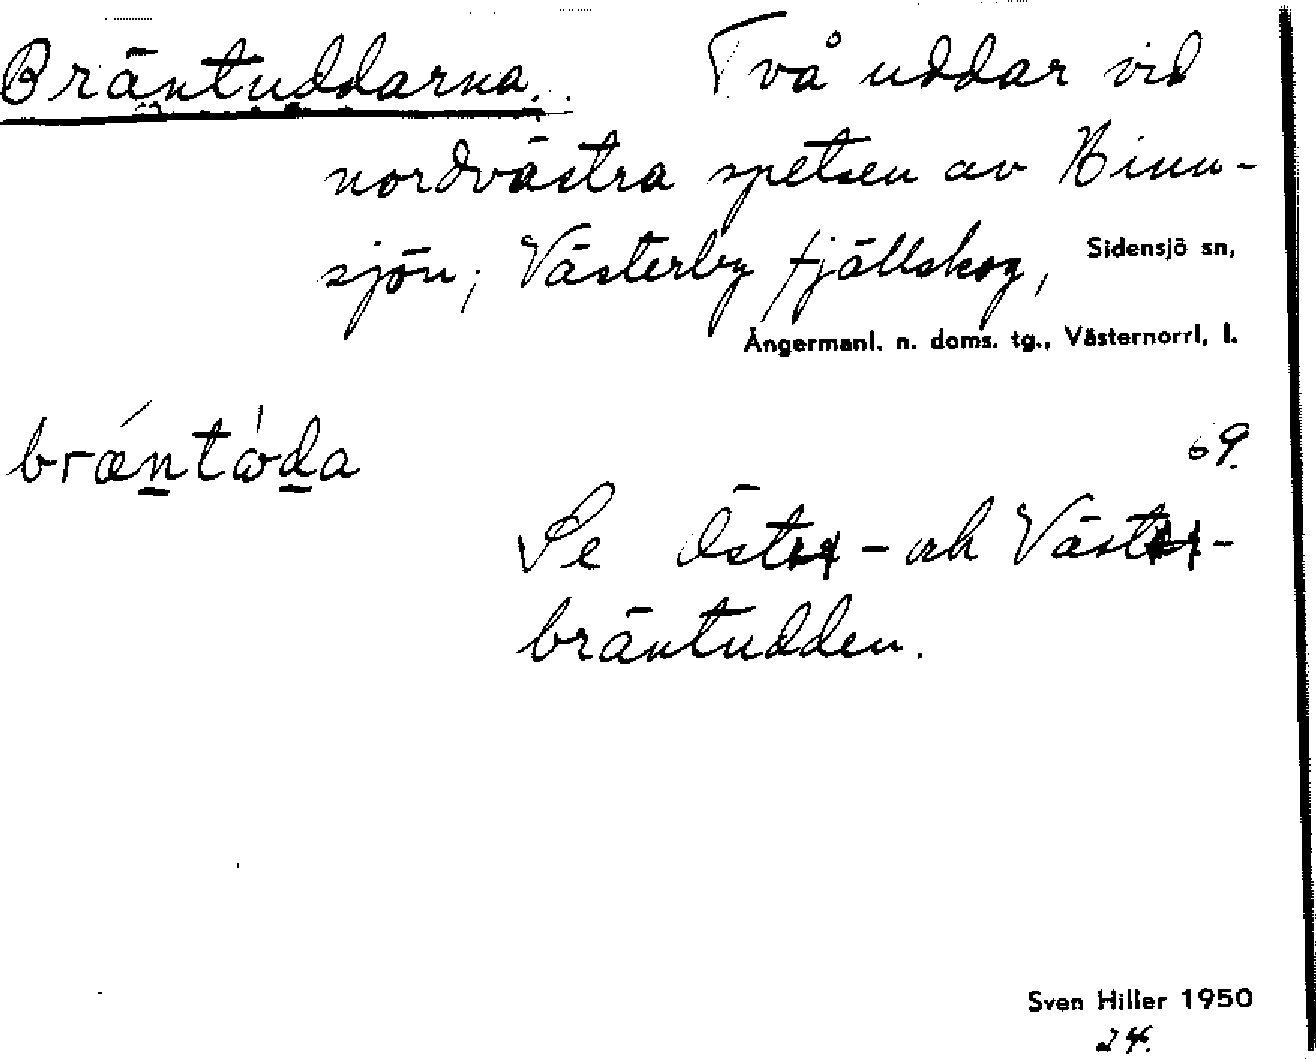 Bräntuddarna. Två uddar vid
nordvästra spetsen av Hinn-
sjön, Västerby fjällskog, Sidensjö sn,
Ångermanl. n. doms. tg., Västernorrl. l.
69.
Se Öst - och Väst -
bräntudden.
Sven Hiller 1950
24.